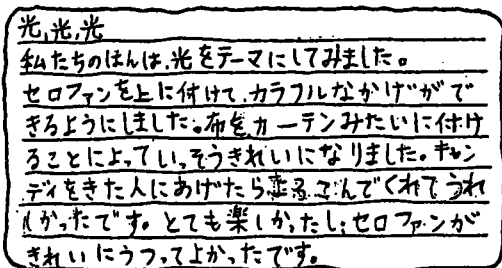 光,光,光
私たちのはんは、光をテーマにしてみました。
セロファンを上に付けて、カラフルなかげがで
きるようにしました。布をカーテンみたいに付け
ることによっていっそうきれいになりました。キャン
ディをきた人にあげたら喜こんでくれてうれ
しかったです。とても楽しかったし、セロファンが
きれいにうつってよかったです。